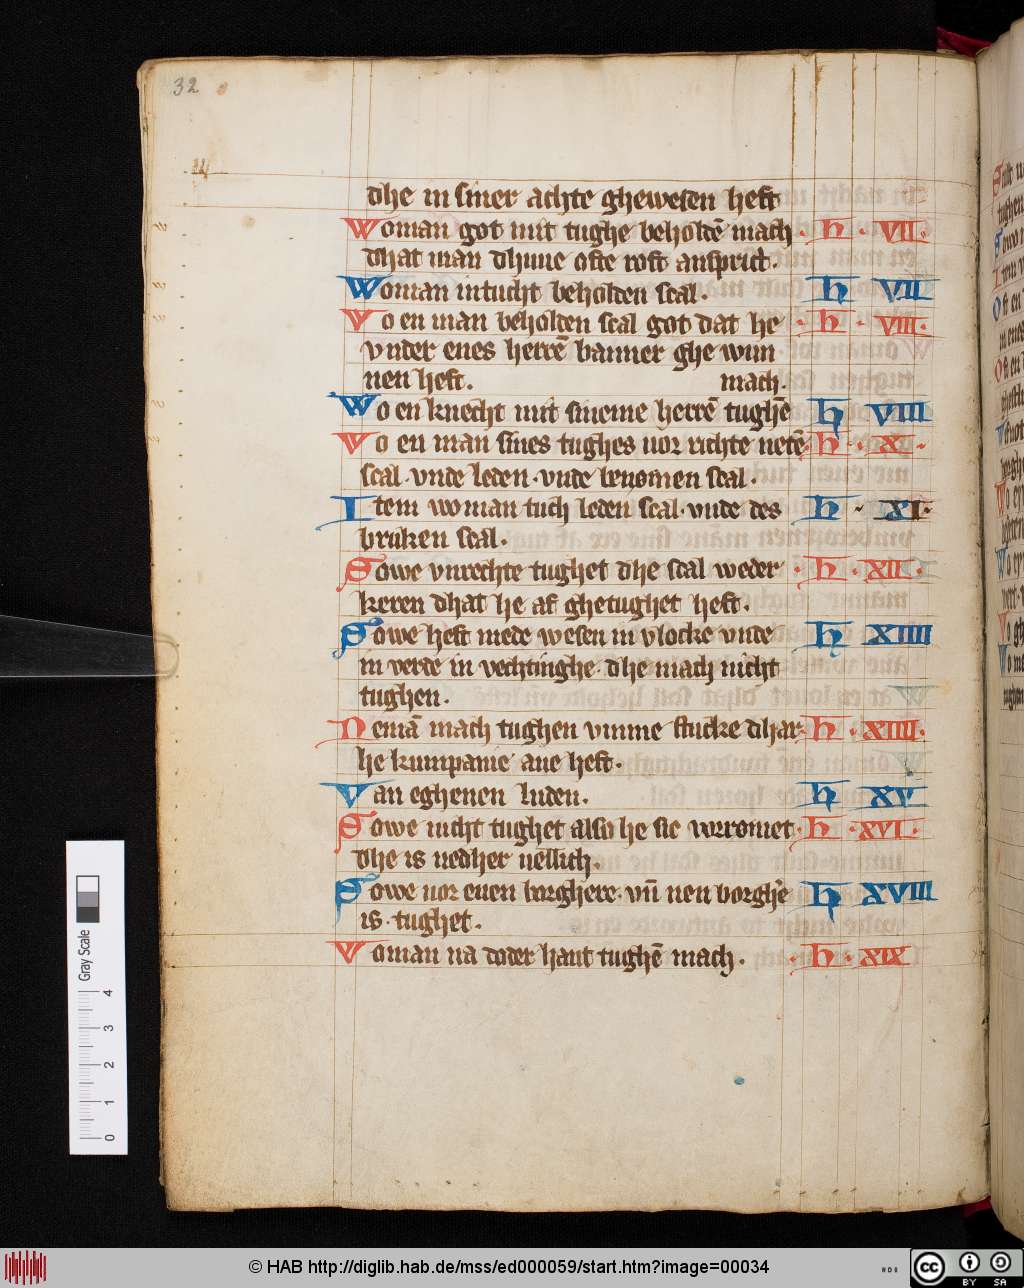 32
dhe in siner achte ghewesen heft
Woman got mit tughe beholdē mach · h · VII ·
dhat man dhuue ofte roft ansprict.
Woman intucht beholden scal. h VII
Vo en man beholden scal got dat he · h · VIII ·
vnder enes herrē banner ghe wun
nen heft. mach.
Wo en knecht mit sineme herrē tughē h VIIII
Vo en man sines tughes uor richte netē · h · X ·
scal · vnde leden · vnde benomen scal.
Item woman tuch leden scal · vnde des h · XI ·
bruken scal.
Sowe vnrechte tughet dhe scal weder · h · XII ·
keren dhat he af ghetughet heft.
Sowe heft mede wesen in vlocke vnde h XIIII
in verde in vechtinghe · dhe mach nicht
tughen.
Nemā mach tughen vmme stucke dhar · h · XIIII ·
he kumpanie ane heft.
Van eghenen luden. h XV
Sowe nicht tughet also he sic vorromet · h · XVI ·
dhe is nedher uellich.
Sowe uor euen borghere · vn̄ nen borghe is h XVIII
is · tughet.
Voman na doder hant tughē mach. · h · XIX
Gray Scale
4
3
2
1
0
© HAB http://diglib.hab.de/mss/ed000059/start.htm?image=00034
cc BY SA